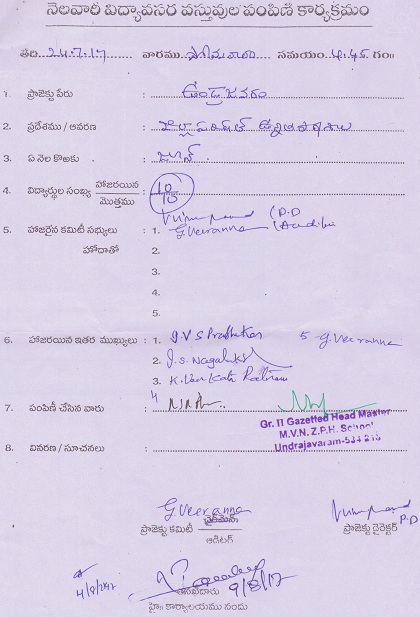 నెలవారీ విద్యావసర వస్తువుల పంపిణీ కార్యక్రమం
తేది 24.7.17 వారము సోమవారం సమయం 4.45 గం॥
1. ప్రాజెక్టు పేరు : ఉండ్రాజవరం
2. ప్రదేశము / ఆవరణ : జిల్లా పరిషత్ ఉన్నత పాఠశాల
3. ఏ నెల కొఱకు : జూన్
4. విద్యార్థుల సంఖ్య హాజరయిన / మొత్తము : 10/10
5. హాజరైన కమిటీ సభ్యులు హోదాతో : 1. (P.D
G.Veeranna
2.
3.
4.
5.
6. హాజరయిన ఇతర ముఖ్యులు : 1. J V S Prabhakar 5 G.Veeranna
2. J.S. Nagalakshmi
3. K. Venkata Ratnam
4
7. పంపిణీ చేసిన వారు :
Gr. II Gazetted Head Master
M.V.N. Z.P.H. School
Undrajavaram-534 216
8. వివరణ / సూచనలు :
G.Veeranna
ప్రాజెక్టు కమిటీ చైర్‌మెన్ / ఆడిటర్
ప్రాజెక్టు డైరెక్టర్ P.D
4/8/2017
9/8/17
హై॥ కార్యాలయము నందు